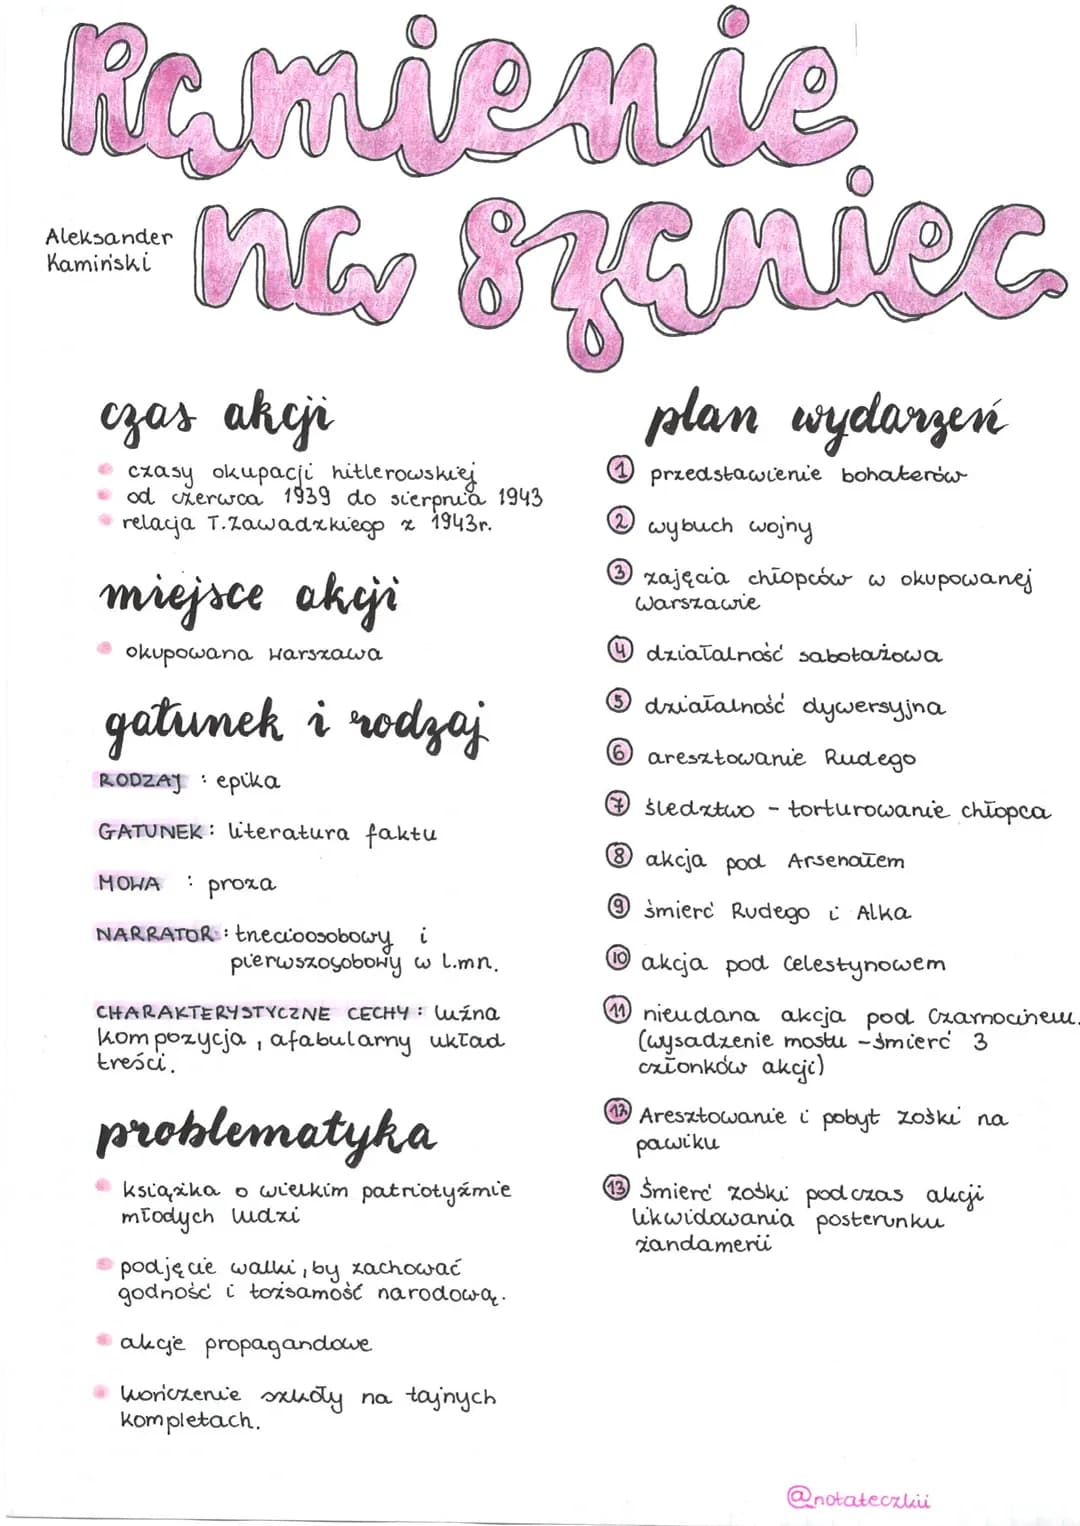 Kamienie
na szaniec
Aleksander
Kamiński
czas akcji
czasy okupacji hitlerowskiej
od czerwca 1939 do sierpnia 1943
relacja T.Zawadzkiego z 1943r.
miejsce akcji
okupowana Warszawa
gatunek i rodzaj
RODZAJ : epika
GATUNEK : literatura faktu
MOWA : proza
NARRATOR : trzecioosobowy i
pierwszosobowy w l.mn.
CHARAKTERYSTYCZNE CECHY : luźna
kompozycja, afabularny układ
treści.
problematyka
książka o wielkim patriotyźmie
młodych ludzi
podjęcie walki, by zachować
godność i tożsamość narodową.
akcje propagandowe
kończenie szkoły na tajnych
kompletach.
plan wydarzeń
1 przedstawienie bohaterów
2 wybuch wojny
3 zajęcia chłopców w okupowanej
Warszawie
4 działalność sabotażowa
5 działalność dywersyjna
6 aresztowanie Rudego
7 śledztwo - torturowanie chłopca
8 akcja pod Arsenałem
9 śmierć Rudego i Alka
10 akcja pod Celestynowem
11 nieudana akcja pod Czarnocinem.
(wysadzenie mostu - śmierć 3
członków akcji)
12 Aresztowanie i pobyt Zośki na
pawiku
13 Śmierć Zośki podczas akcji
likwidowania posterunku
żandamerii
@notateczkii